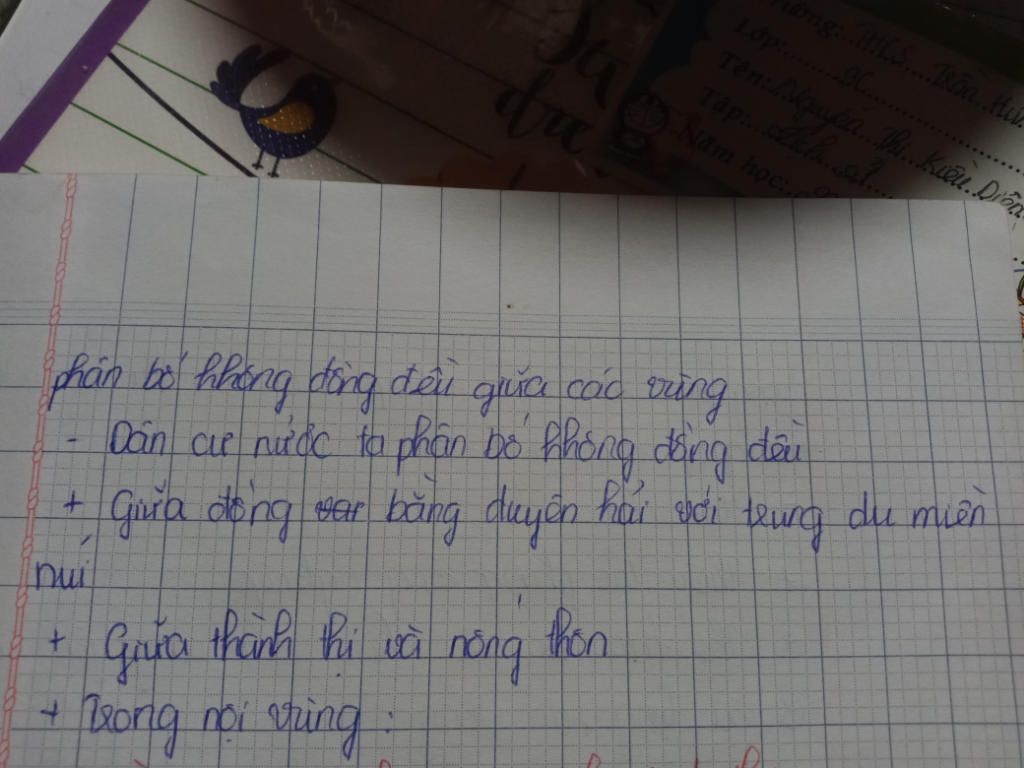 Sa
du
Trường: THCS Trần Hưn
Lớp:
Tên: Nguyễn Thị Kiều Diễm
Tập:
Năm học:
phân bố không đồng đều giữa các vùng
- Dân cư nước ta phân bố không đồng đều
+ Giữa đồng bằng duyên hải với trung du miền
núi
+ Giữa thành thị và nông thôn
+ Trong nội vùng :